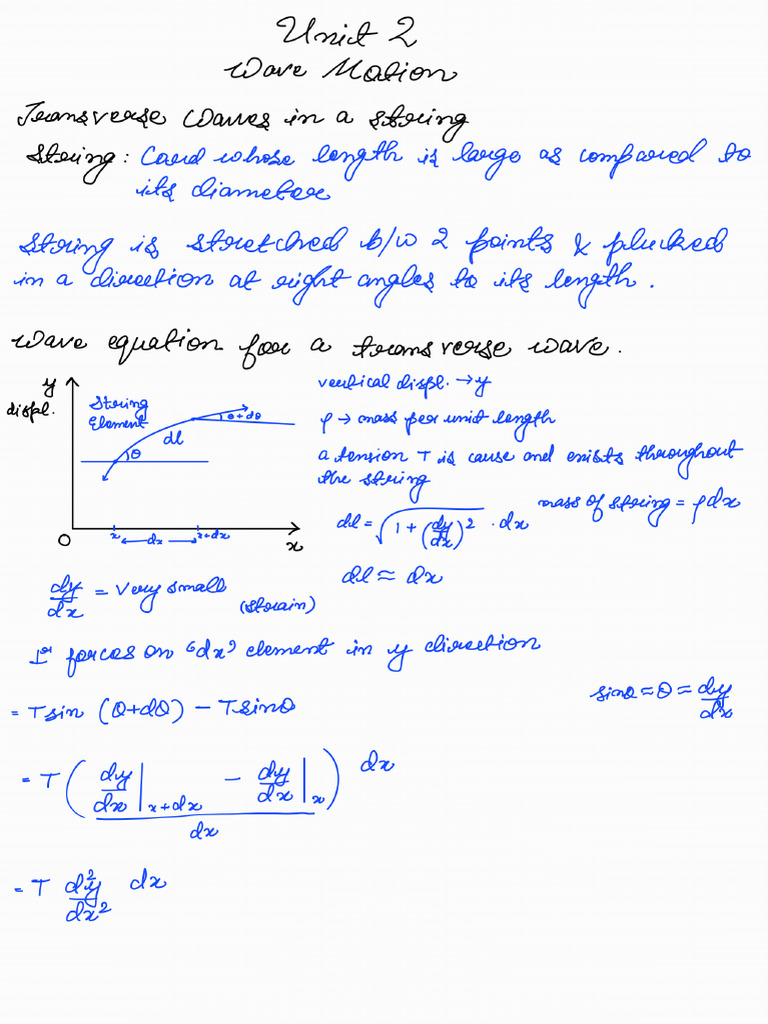 Unit 2
Wave Motion
Transverse Waves in a string
String: Cord whose length is large as compared to
its diameter
String is stretched b/w 2 points & plucked
in a direction at right angles to its length.
Wave equation for a transverse wave.
y
displ.
String
Element
dl
θ
θ+dθ
O
x
dx
x+dx
x
vertical displ. → y
ρ → mass per unit length
a tension T is cause and exists throughout
the string
dl = √(1 + (dy/dx)²) · dx
mass of string = ρdx
dl ≈ dx
dy/dx = very small
(strain)
⊥ʳ forces on "dx" element in y direction
= T sin (θ+dθ) - T sinθ
sinθ ≈ θ = dy/dx
= T ( dy/dx |x+dx - dy/dx |x ) dx
dx
= T d²y/dx² dx